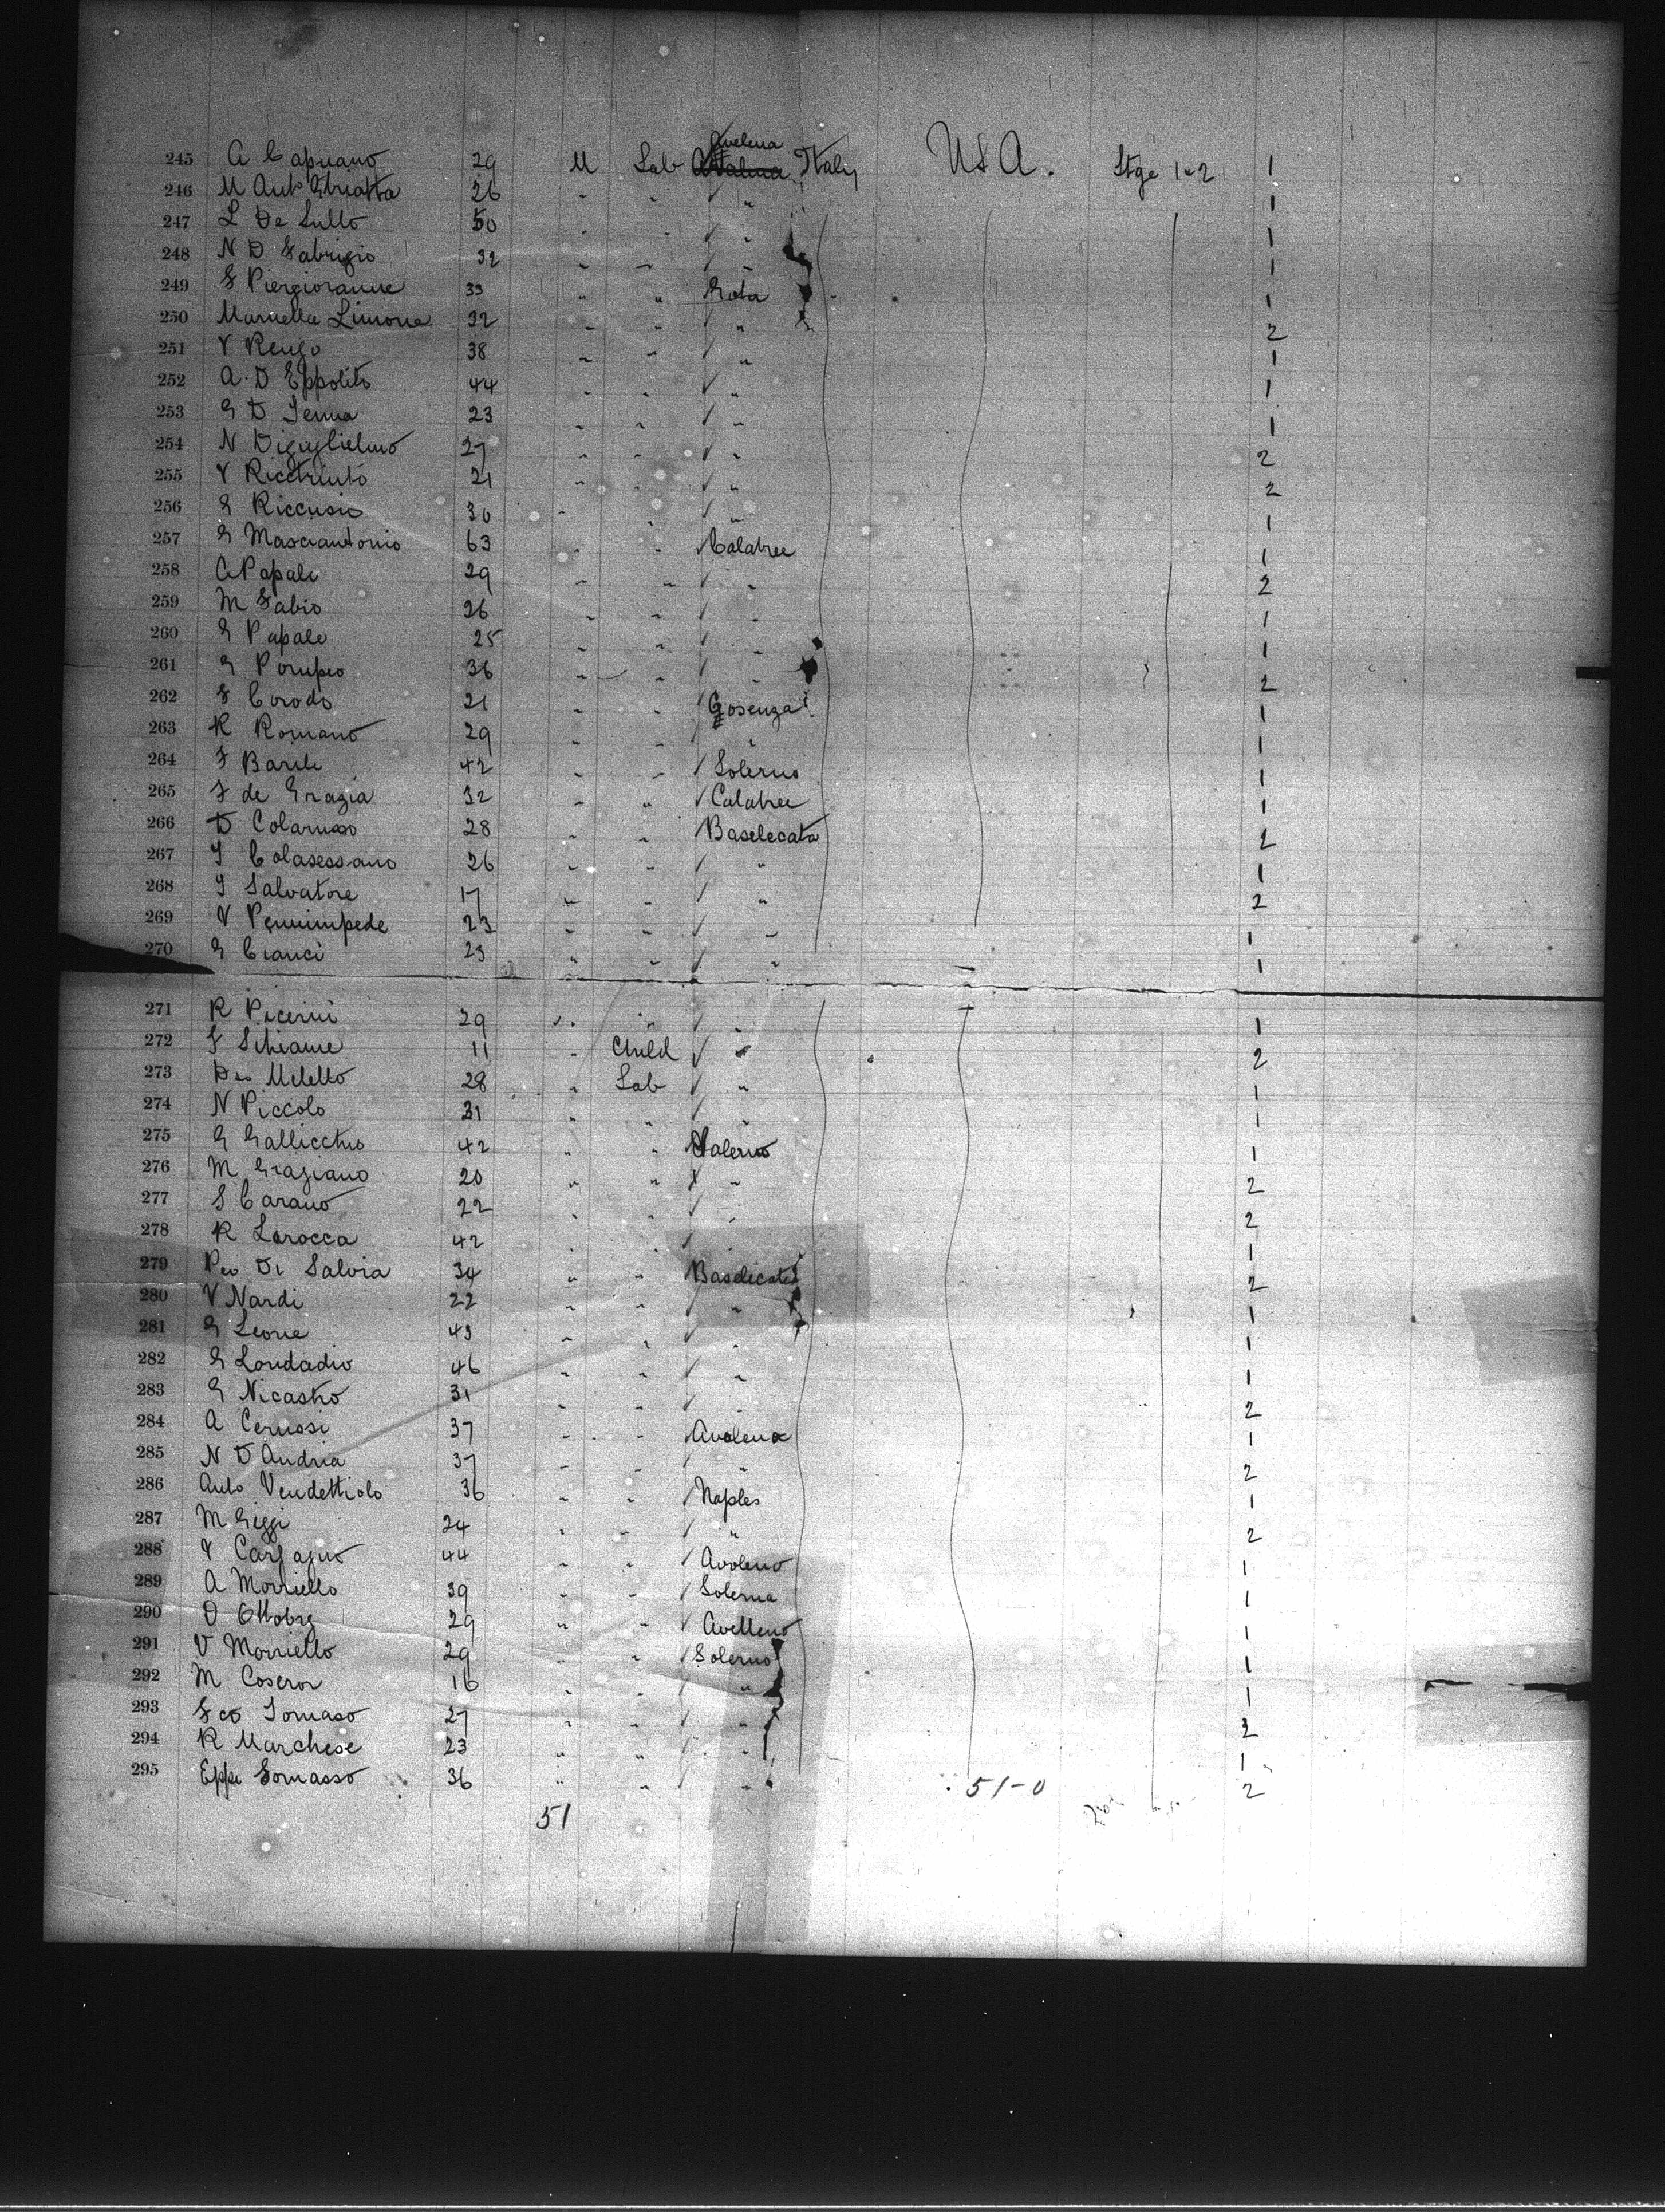 245 A Capuano 29 M Lab Avelena Italy U S A. Stge 1 & 2 1
246 M Anto Ghiatta 26 " " " 1
247 L De Sullo 50 " " " 1
248 N D Fabrizio 32 " " " 1
249 F Piergiovanne 33 " " 1
250 Limone 32 " " " 2
251 V Renzo 38 " " " 1
252 A. D Eppolito 44 " " " 1
253 G D Jenna 23 " " " 1
254 N Diguglielmo 27 " " " 2
255 V 21 " " " 2
256 G Riccusio 30 " " " 1
257 G Masciantonio 63 " " Calabree 1
258 C Papale 29 " " " 2
259 M Fabio 26 " " " 1
260 G Papale 25 " " " 1
261 G Pompeo 36 " " " 2
262 F Corodo 21 " " Cosenza 1
263 R Romano 29 " " " 1
264 F Barile 42 " " Solerno 1
265 F de Grazia 32 " " Calabree 1
266 D Colarusso 28 " " Baselecata 2
267 G Colasessano 26 " " " 1
268 G Salvatore 17 " " " 2
269 V 23 " " " 1
270 G Cianci 23 " " " 1
271 R Picerni 29 " " " 1
272 F Schiame 11 " Child " 2
273 Meletto 28 " Lab " 1
274 N Piccolo 31 " " " 1
275 G Gallicchio 42 " " Salerno 1
276 M Graziano 20 " " " 2
277 S Carano 22 " " " 2
278 R Larocca 42 " " " 1
279 Di Salvia 34 " " Baselecata 2
280 V Nardi 22 " " " 1
281 G Leone 43 " " " 1
282 G Londadio 46 " " " 1
283 G Nicastro 31 " " " 2
284 A Cerussi 37 " " Avolena 1
285 N D Andria 37 " " " 2
286 Anto Vendettiolo 36 " " Naples 1
287 M Giggi 24 " " " 2
288 V 44 " " Avoleno 1
289 A Morriello 39 " " Solerna 1
290 D Ottobre 29 " " Avelleno 1
291 V Morriello 29 " " Solerno 1
292 M 16 " " " 1
293 Fco Tomaso 27 " " " 2
294 R Marchese 23 " " " 1
295 36 " " " 51-0 2
51